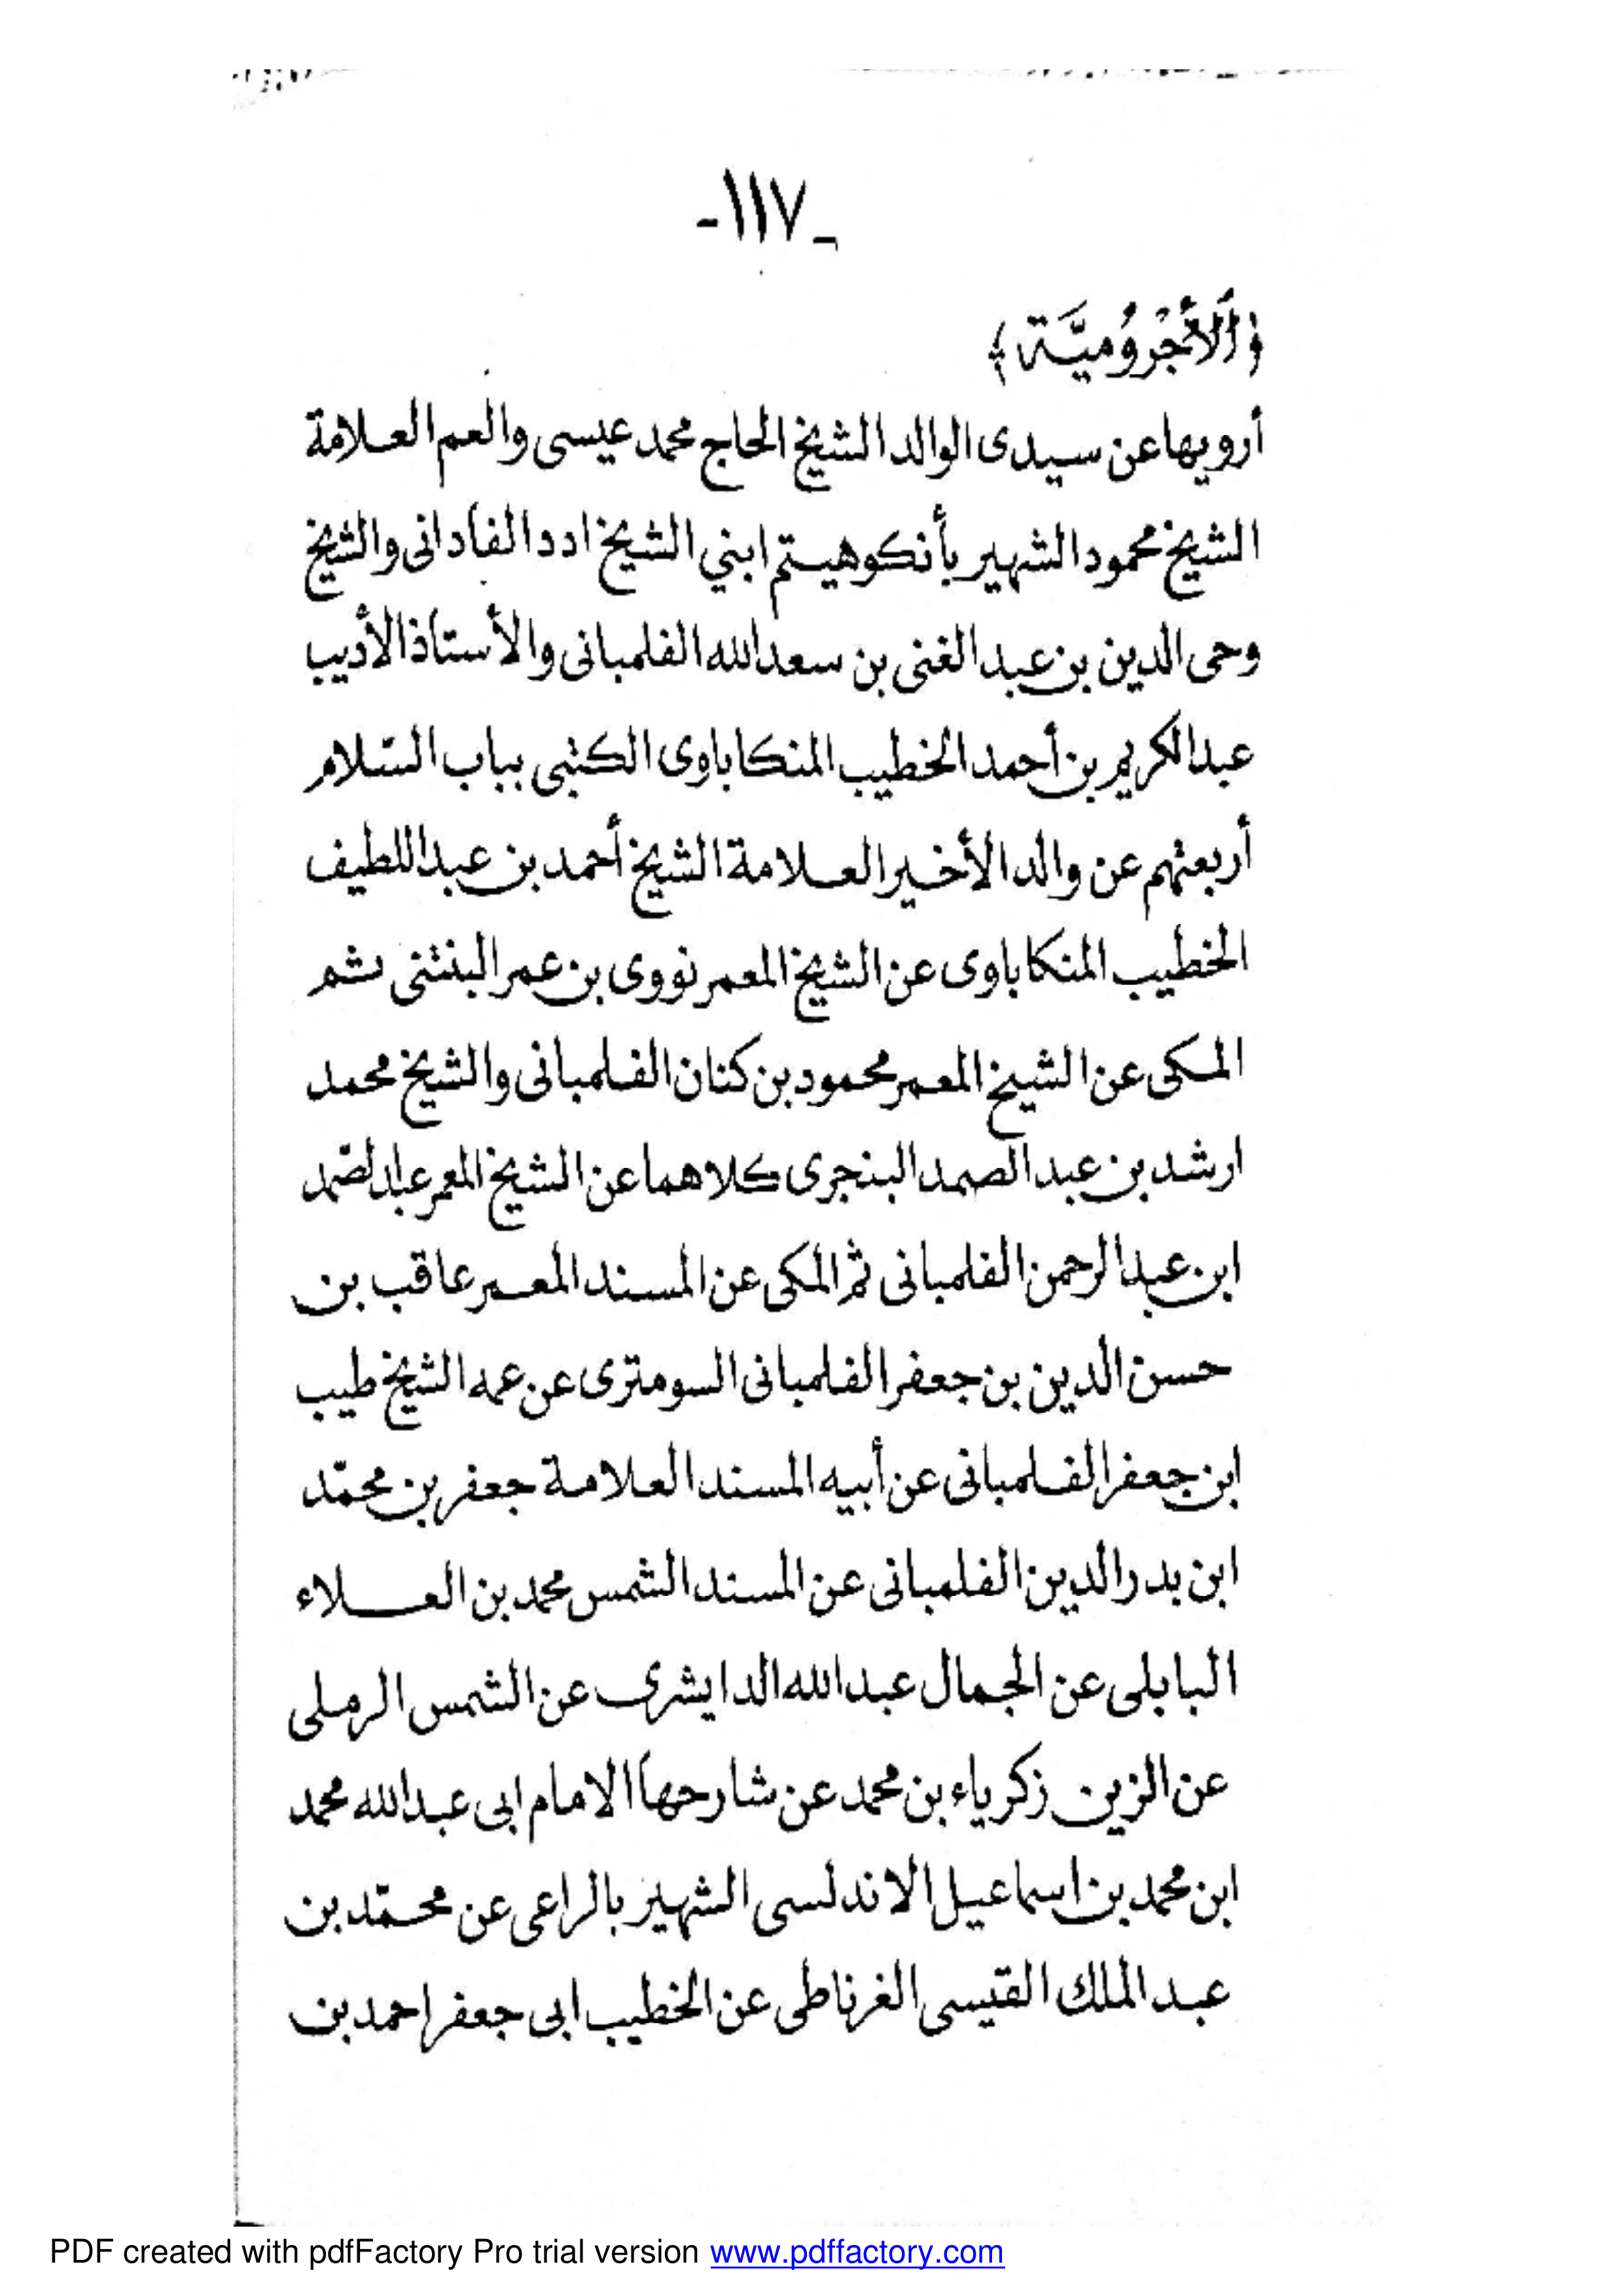 -١١٧-
﴿اَلْأَجْرُوْمِيَّة﴾
أرويها عن سيدى الوالد الشيخ الحاج محمد عيسى والعم العلامة
الشيخ محمود الشهير بأنكوهيتم ابني الشيخ ادد الفادانى والشيخ
وحى الدين بن عبد الغنى بن سعد الله الفلمبانى والأستاذ الأديب
عبد الكريم بن أحمد الخطيب المنكاباوى الكتبى بباب السّلام
أربعتهم عن والد الأخير العلامة الشيخ أحمد بن عبد اللطيف
الخطيب المنكاباوى عن الشيخ المعمر نووى بن عمر البنتنى ثم
المكى عن الشيخ المعمر محمود بن كنان الفلمبانى والشيخ محمد
ارشد بن عبد الصمد البنجرى كلاهما عن الشيخ المعمر عبد الصّمد
ابن عبد الرحمن الفلمبانى ثم المكى عن المسند المعمر عاقب بن
حسن الدين بن جعفر الفلمبانى السومترى عن عمه الشيخ طيب
ابن جعفر الفلمبانى عن أبيه المسند العلامة جعفر بن محمّد
ابن بدر الدين الفلمبانى عن المسند الشمس محمد بن العلاء
البابلى عن الجمال عبد الله الدايشرى عن الشمس الرملى
عن الزين زكرياء بن محمد عن شارحها الامام ابى عبد الله محمد
ابن محمد بن اسماعيل الاندلسى الشهير بالراعى عن محمّد بن
عبد الملك القيسى الغرناطى عن الخطيب ابى جعفر احمد بن
PDF created with pdfFactory Pro trial version www.pdffactory.com